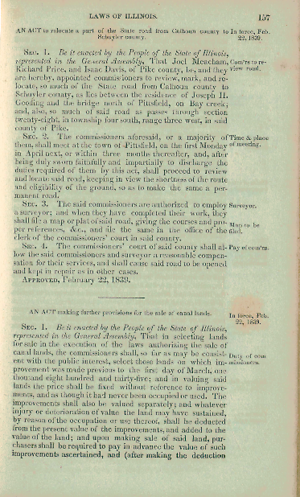 LAWS OF ILLINOIS. 157
AN ACT to relocate a part of the State road from Calhoun county to Schuyler county.
In force, Feb. 22, 1839.
SEC. 1. Be it enacted by the People of the State of Illinois,
represented in the General Assembly, That Joel Meacham,
Richard Price, and Isaac Davis, of Pike county, be, and they
are hereby, appointed commissioners to review, mark, and re-
locate, so much of the State road from Calhoun county to
Schuyler county, as lies between the residence of Joseph H.
Gooding and the bridge north of Pittsfield, on Bay creek;
and, also, so much of said road as passes through section
twenty-eight, in township four south, range three west, in said
county of Pike.
Com'rs to re-
view road.
SEC. 2. The commissioners aforesaid, or a majority of
them, shall meet at the town of Pittsfield, on the first Monday
in April next, or within three months thereafter, and, after
being duly sworn faithfully and impartially to discharge the
duties required of them by this act, shall proceed to review
and locate said road, keeping in view the shortness of the route
and eligibility of the ground, so as to make the same a per-
manent road.
Time & place
of meeting.
SEC. 3. The said commissioners are authorized to employ
a surveyor; and when they have completed their work, they
shall file a map or plat of said road, giving the courses and pro-
per references, &c., and file the same in the office of the
clerk of the commissioners' court in said county.
Surveyor.
Map to be
filed.
SEC. 4. The commissioners' court of said county shall al-
low the said commissioners and surveyor a reasonable compen-
sation for their services, and shall cause said road to be opened
and kept in repair as in other cases.
Pay of com'rs.
APPROVED, February 22, 1839.
AN ACT making further provisions for the sale of canal lands.
In force, Feb.
22, 1839.
SEC. 1. Be it enacted by the People of the State of Illinois,
represented in the General Assembly, That in selecting lands
for sale in the execution of the laws authorizing the sale of
canal lands, the commissioners shall, so far as may be consist-
ent with the public interest, select those lands on which im-
provement was made previous to the first day of March, one
thousand eight hundred and thirty-five; and in valuing said
lands the price shall be fixed without reference to improve-
ments, and as though it had never been occupied or used. The
improvements shall also be valued separately; and whatever
injury or deterioration of value the land may have sustained,
by reason of the occupation or use thereof, shall be deducted
from the present value of the improvements, and added to the
value of the land; and upon making sale of said land, pur-
chasers shall be required to pay in advance the value of such
improvements ascertained, and (after making the deduction
Duty of com-
missioners